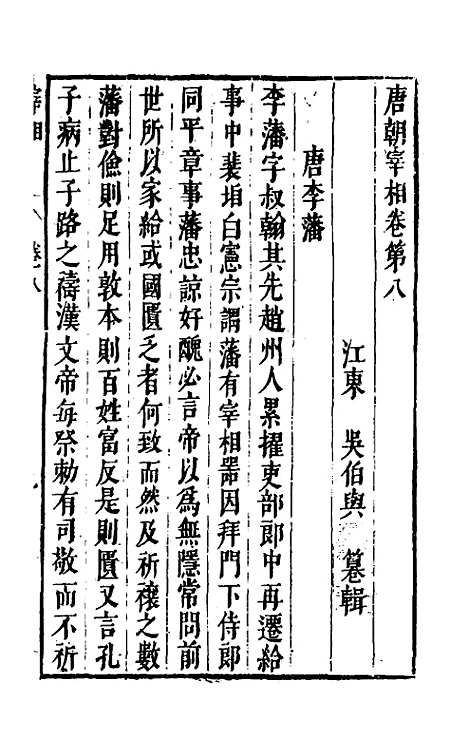 唐朝宰相卷第八
江東 吳伯與 纂輯
唐李藩
李藩字叔翰其先趙州人累擢吏部郎中再遷給
事中裴垍白憲宗謂藩有宰相器因拜門下侍郎
同平章事藩忠諒好醜必言帝以爲無隱常問前
世所以家給或國匱乏者何致而然及祈禳之數
藩對儉則足用敦本則百姓富反是則匱又言孔
子病止子路之禱漢文帝每祭勅有司敬而不祈
卷八